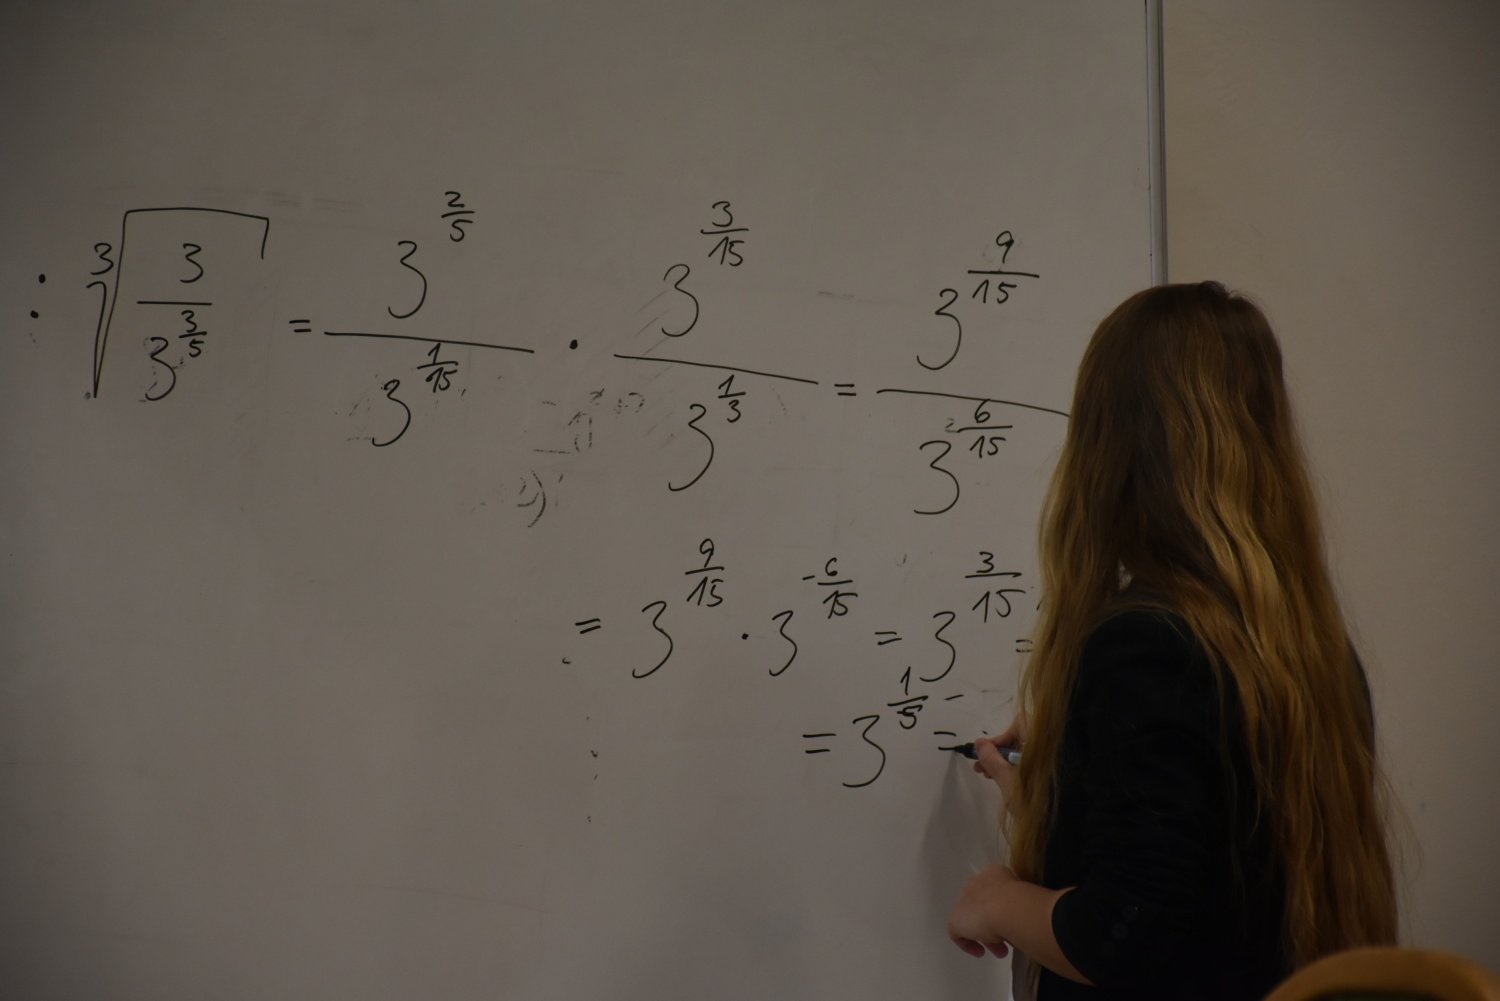 : ∛(3 / 3^(3/5)) = 3^(2/5) / 3^(1/15) · 3^(3/15) / 3^(1/3) = 3^(9/15) / 3^(6/15)
= 3^(9/15) · 3^(-6/15) = 3^(3/15) =
= 3^(1/5) =